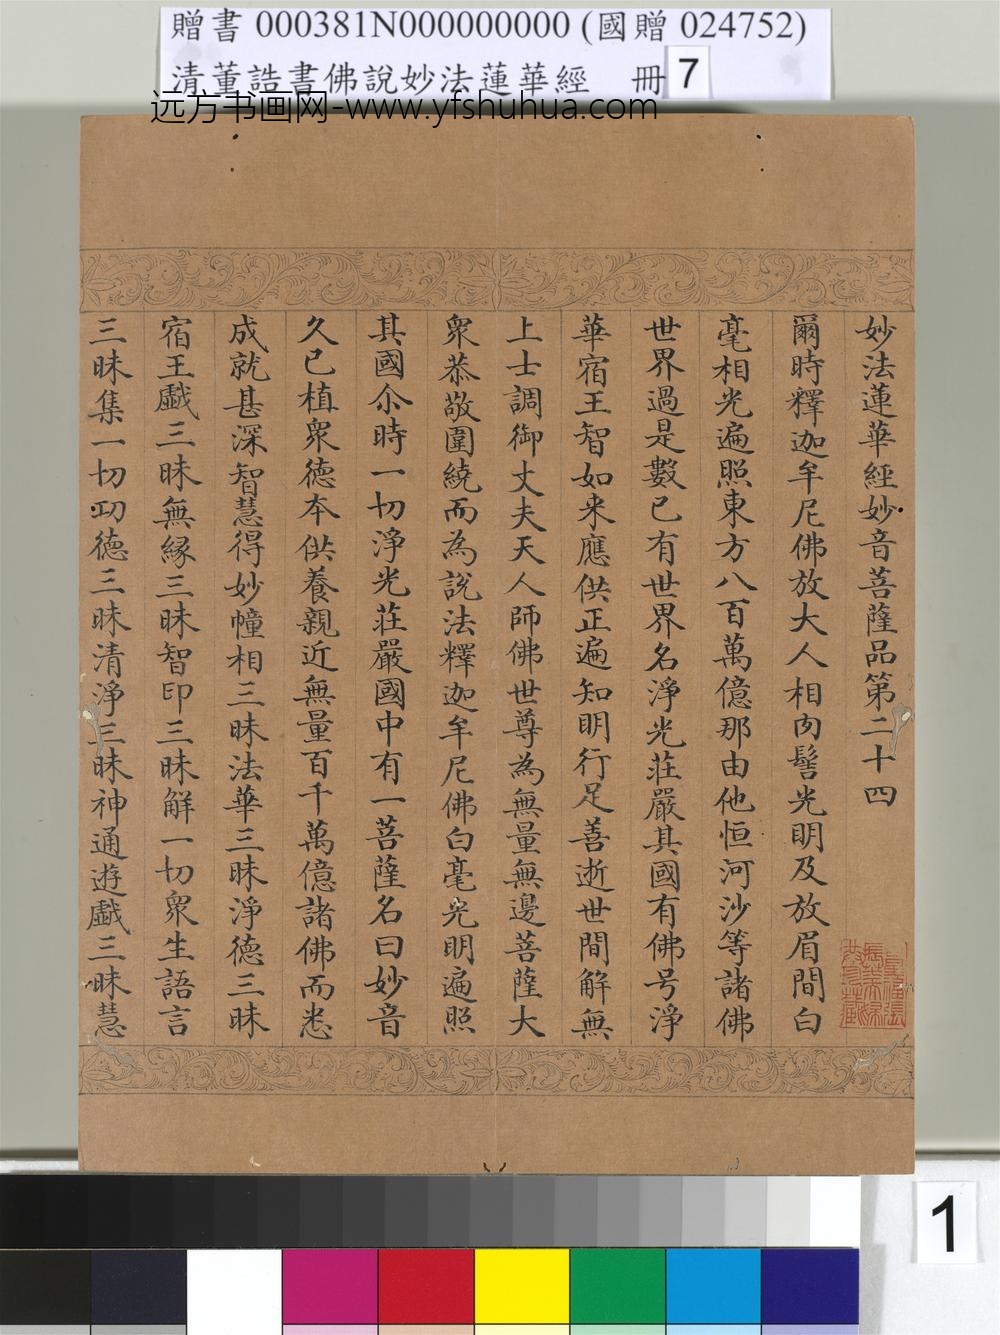 贈書 000381N000000000 (國贈 024752)
清董誥書佛說妙法蓮華經 冊 7
远方书画网-www.yfshuhua.com
妙法蓮華經妙音菩薩品第二十四
爾時釋迦牟尼佛放大人相肉髻光明及放眉間白
毫相光遍照東方八百萬億那由他恒河沙等諸佛
世界過是數已有世界名淨光莊嚴其國有佛号淨
華宿王智如来應供正遍知明行足善逝世間解無
上士調御丈夫天人師佛世尊為無量無邊菩薩大
眾恭敬圍繞而為說法釋迦牟尼佛白毫光明遍照
其國尒時一切淨光莊嚴國中有一菩薩名曰妙音
久已植眾德本供養親近無量百千萬億諸佛而悉
成就甚深智慧得妙幢相三昧法華三昧淨德三昧
宿王戲三昧無緣三昧智印三昧解一切眾生語言
三昧集一切功德三昧清淨三昧神通遊戲三昧慧
1